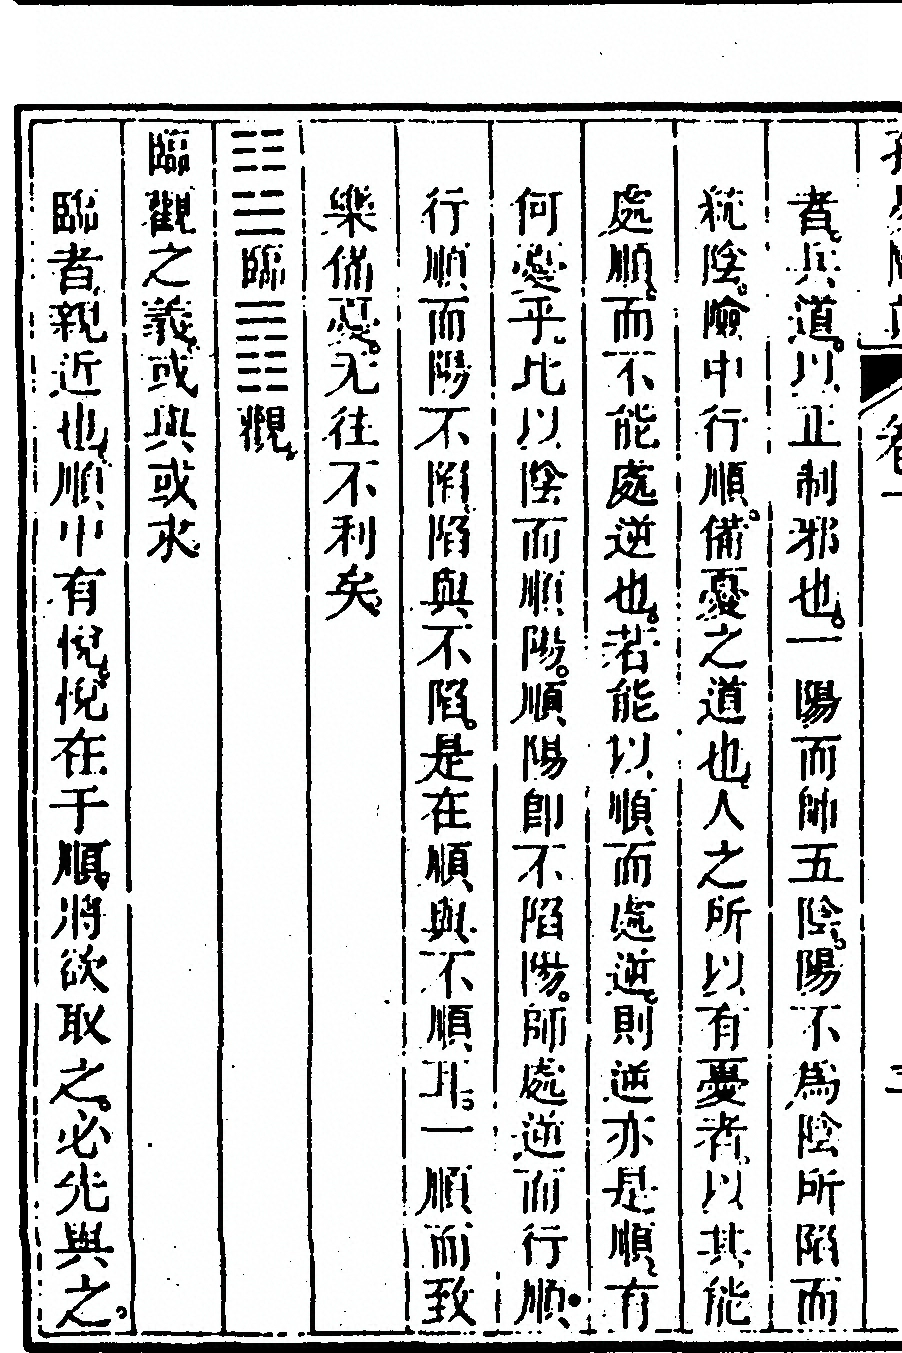 者兵道以正制邪也一陽而師五陰陽不為陰所陷而
統陰險中行順備憂之道也人之所以有憂者以其能
處順而不能處逆也若能以順而處逆則逆亦是順有
何憂乎比以陰而順陽順陽即不陷陽師處逆而行順
行順而陽不陷陷與不陷是在順與不順耳一順而致
樂備憂无往不利矣
䷒臨䷓觀
臨觀之義或與或求
臨者親近也順中有悅悅在于順將欲取之必先與之